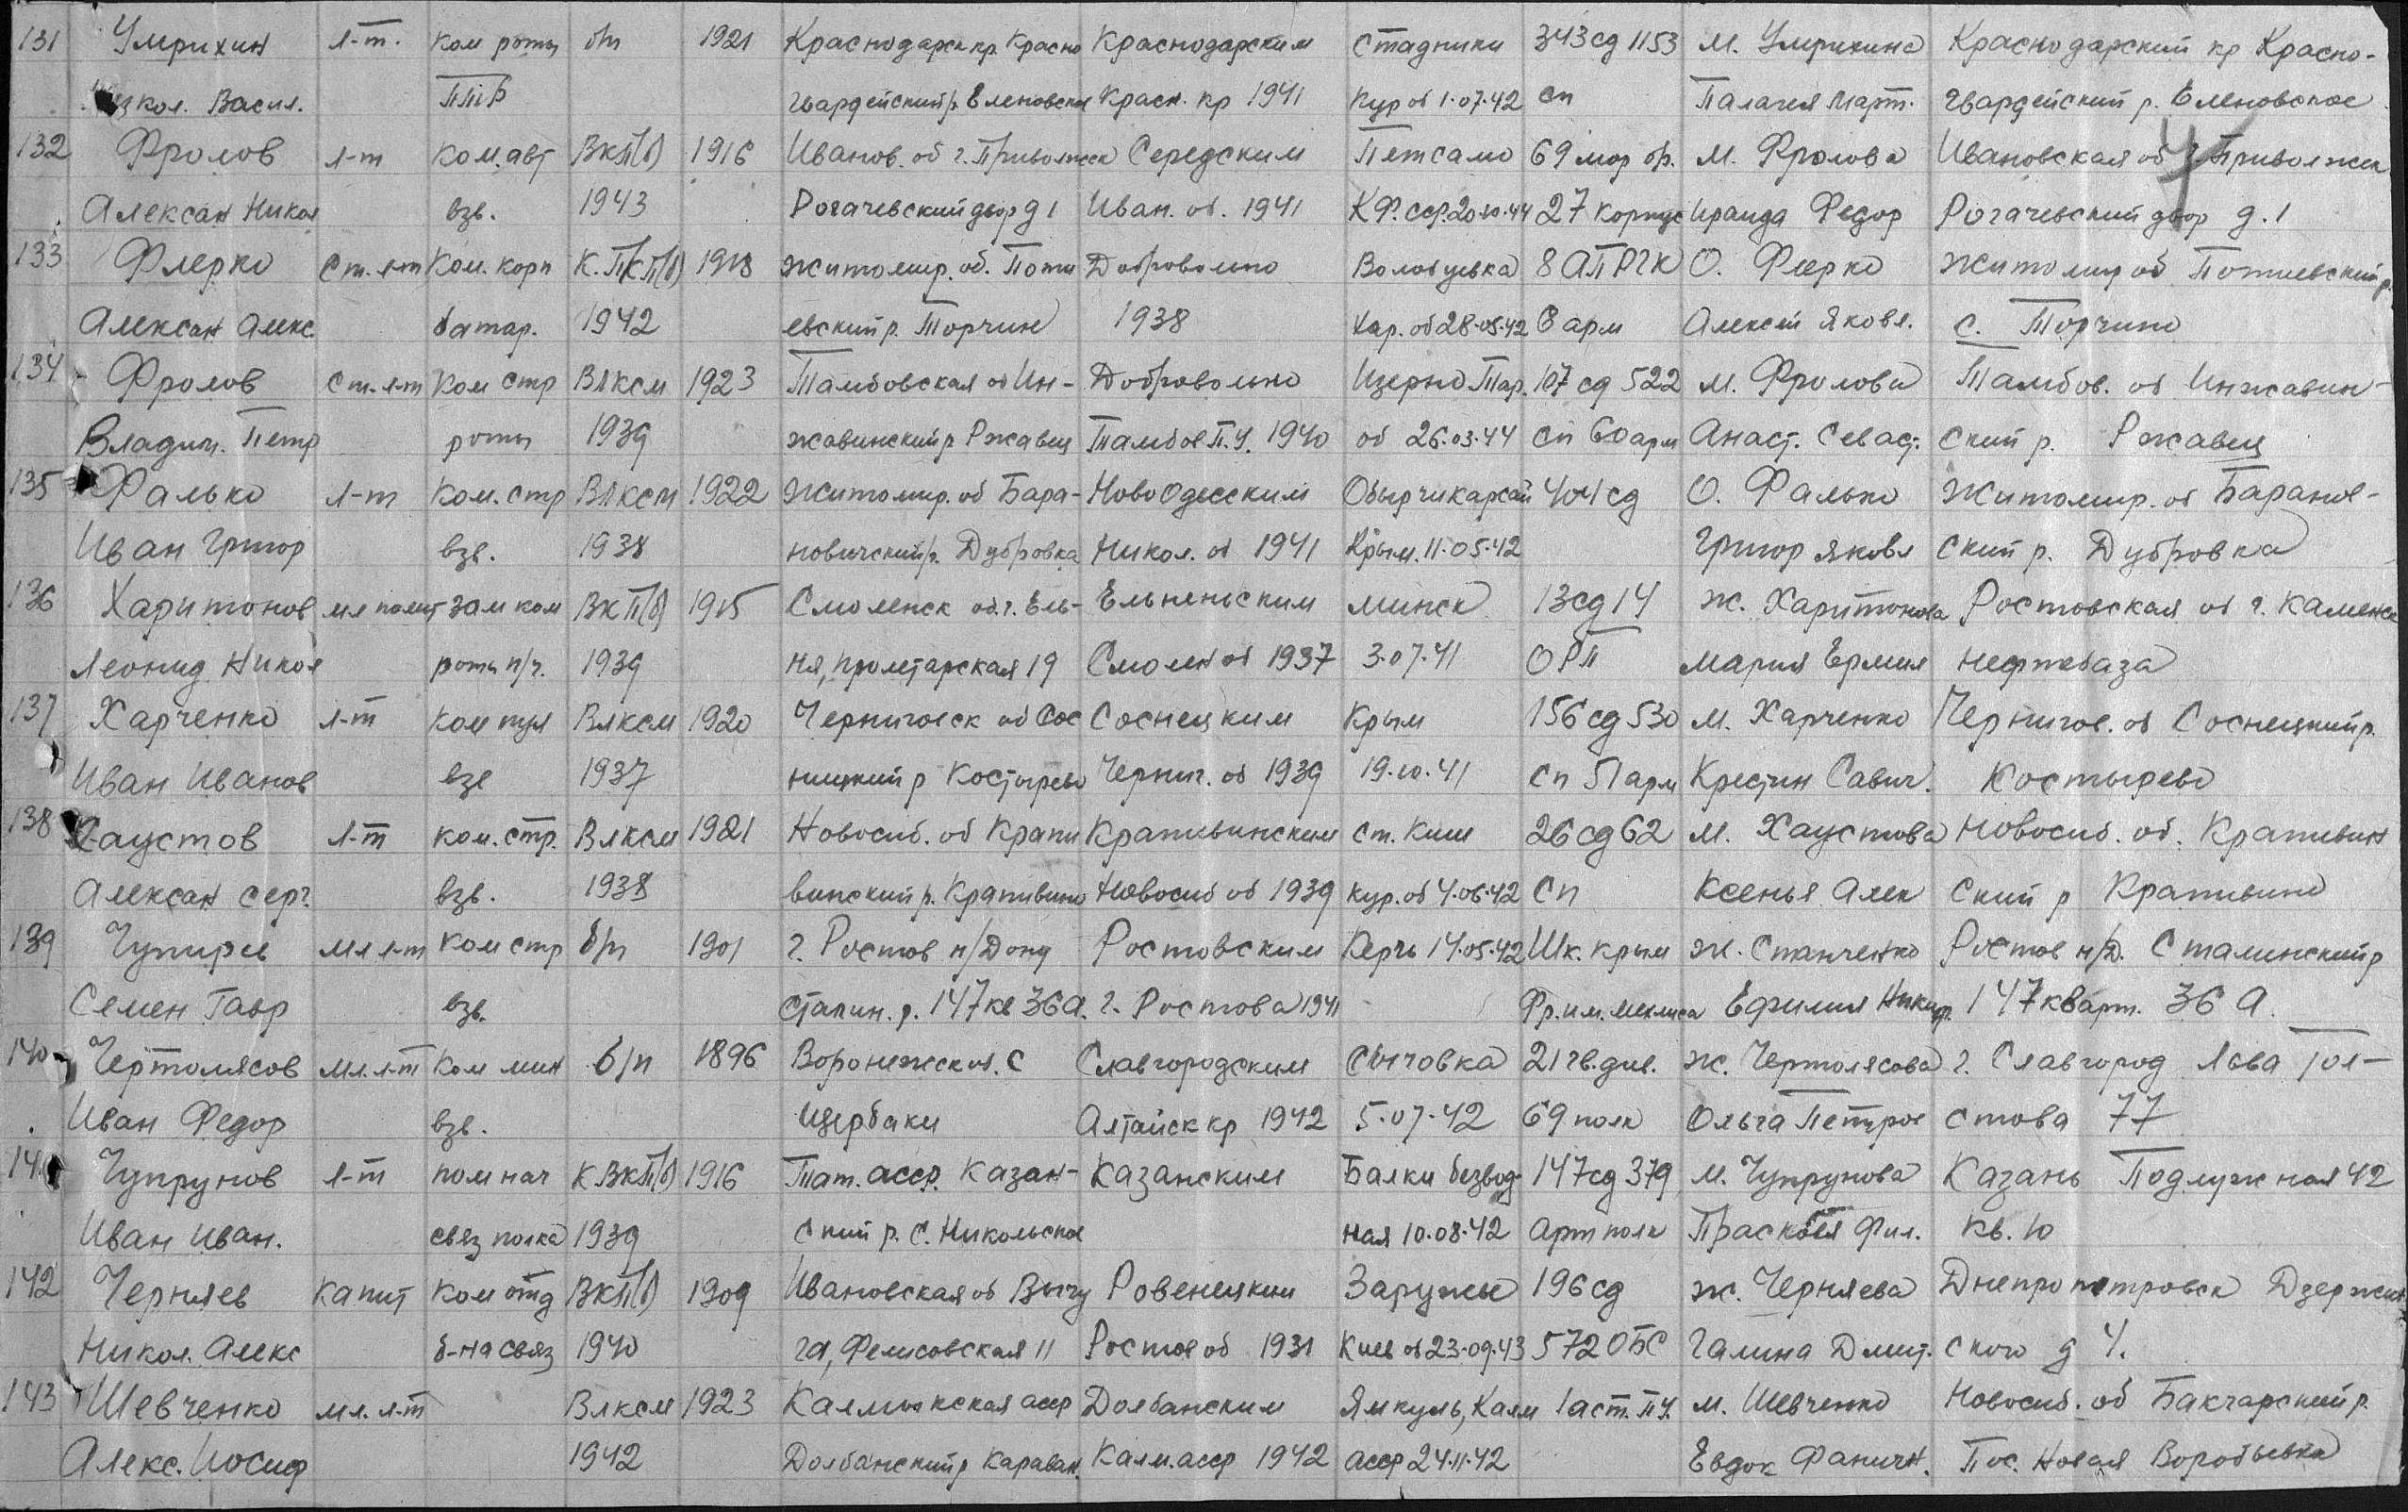 131 Умрихин л-т. ком роты б/п 1921 Краснодарск кр. Красно Краснодарским Стадники 343 сд 1153 м. Умрихина Краснодарский кр Красно-
Васил. ППР гвардейский р. Еленовская Красн. кр 1941 Кур об 1.07.42 сп Палагея Март. гвардейский р. Еленовское
132 Фролов л-т Ком. авт ВКП(б) 1916 Иванов. об г. Приволжск Середским Петсамо 69 мор бр. м. Фролова Ивановская об г. Приволжск
Алексан Никол взв. 1943 Рогачевский двор д 1 Иван. об. 1941 К Ф. сср. 20.10.44 27 корпус Ираида Федор Рогачевский двор д. 1
133 Флерко Ст. л-т Ком. корп К. ПКП(б) 1918 Житомир. об. Поти Добровольно Волобуевка 8 АП РГК О. Флерко Житомир об Потиевский р.
Алексан Алекс. батар. 1942 евский р. Торчин 1938 Хар. об 28.05.42 6 арм Алексей Яковл. с. Торчино
134 Фролов Ст. л-т Ком стр ВЛКСМ 1923 Тамбовская об Ин- Добровольно Изерно Тар. 107 сд 522 м. Фролова Тамбов. об Инжавин-
Владим. Петр роты 1939 жавинский р Ржавец Тамбов П.У. 1940 об 26.03.44 сп 60 арм Анаст. Севаст. ский р. Ржавец
135 Фалько л-т Ком. стр ВЛКСМ 1922 Житомир. об Бара- Ново Одесским 404 сд О. Фалько Житомир. об Баранов-
Иван Григор взв. 1938 новичский р. Дубровка Никол. об 1941 Крым. 11.05.42 Григор Яковл ский р. Дубровка
136 Харитонов мл полит зам ком ВКП(б) 1915 Смоленск об. г. Ель- Ельненьским Минск 13 сд 14 ж. Харитонова Ростовская об г. Каменск
Леонид Никол роты п/ч. 1939 ня, пролетарская 19 Смолен об 1937 3.07.41 ОРП Мария Ермил нефтебаза
137 Харченко л-т ком пул ВЛКСМ 1920 Черниговск об Сос Соснецким Крым 156 сд 530 м. Харченко Чернигов. об Соснецкий р.
Иван Иванов взв 1937 ницкий р Костырево Черниг. об 1939 19.10.41 сп 51 арм Кристин Савич. Костырево
138 Хаустов л-т ком. стр. ВЛКСМ 1921 Новосиб. об Крапи Крапивинским ст. Кшн 26 сд 62 м. Хаустова Новосиб. об. Крапивин
Алексан Серг. взв. 1938 винский р. Крапивино Новосиб об 1939 Кур. об 4.06.42 сп Ксенья Алек ский р Крапивино
139 Чупирев мл л-т Ком стр б/п 1901 г. Ростов н/Дону Ростовским Керчь 14.05.42 Шк. Крым ж. Станченко Ростов н/Д. Сталинский р
Семен Гавр взв. Сталин. р. 147 кв 36 а. г. Ростова 1941 Фр. им. Мехлиса Ефимия Никиф. 147 кварт. 36 а.
140 Чертолясов мл. л-т Ком мин б/п 1896 Воронежск об. с Славгородским Сычовка 21 гв. див. ж. Чертолясова г. Славгород Льва Тол-
Иван Федор взв. Щербаки Алтайск кр 1942 5.07.42 69 полк Ольга Петров стова 77
141 Чупрунов л-т пом нач К ВКП(б) 1916 Тат. асср. Казан- Казанским Балки безвод- 147 сд 379 м. Чупрунова Казань Подлужная 42
Иван Иван. связ полка 1939 ский р. с. Никольское ная 10.08.42 арт полк Прасковья Фил. кв. 10
142 Черняев Капит Ком отд ВКП(б) 1909 Ивановская об Вичу Ровенецким Зарубье 196 сд ж. Черняева Днепропетровск Дзержин
Никол. Алекс б-на связ 1940 га, Фелисовская 11 Ростов об 1931 Киев об 23.09.43 572 ОБС Галина Дмит. ского д 4.
143 Шевченко мл. л-т ВЛКСМ 1923 Калмыкская асср Долбанским Яшкуль, Калм 1 аст. П.У. м. Шевченко Новосиб. об Бакчарский р.
Алекс. Иосиф 1942 Долбанский р Караван. Калм. асср 1942 асср 24.11.42 Евдок Пос. Новая Воробьевка